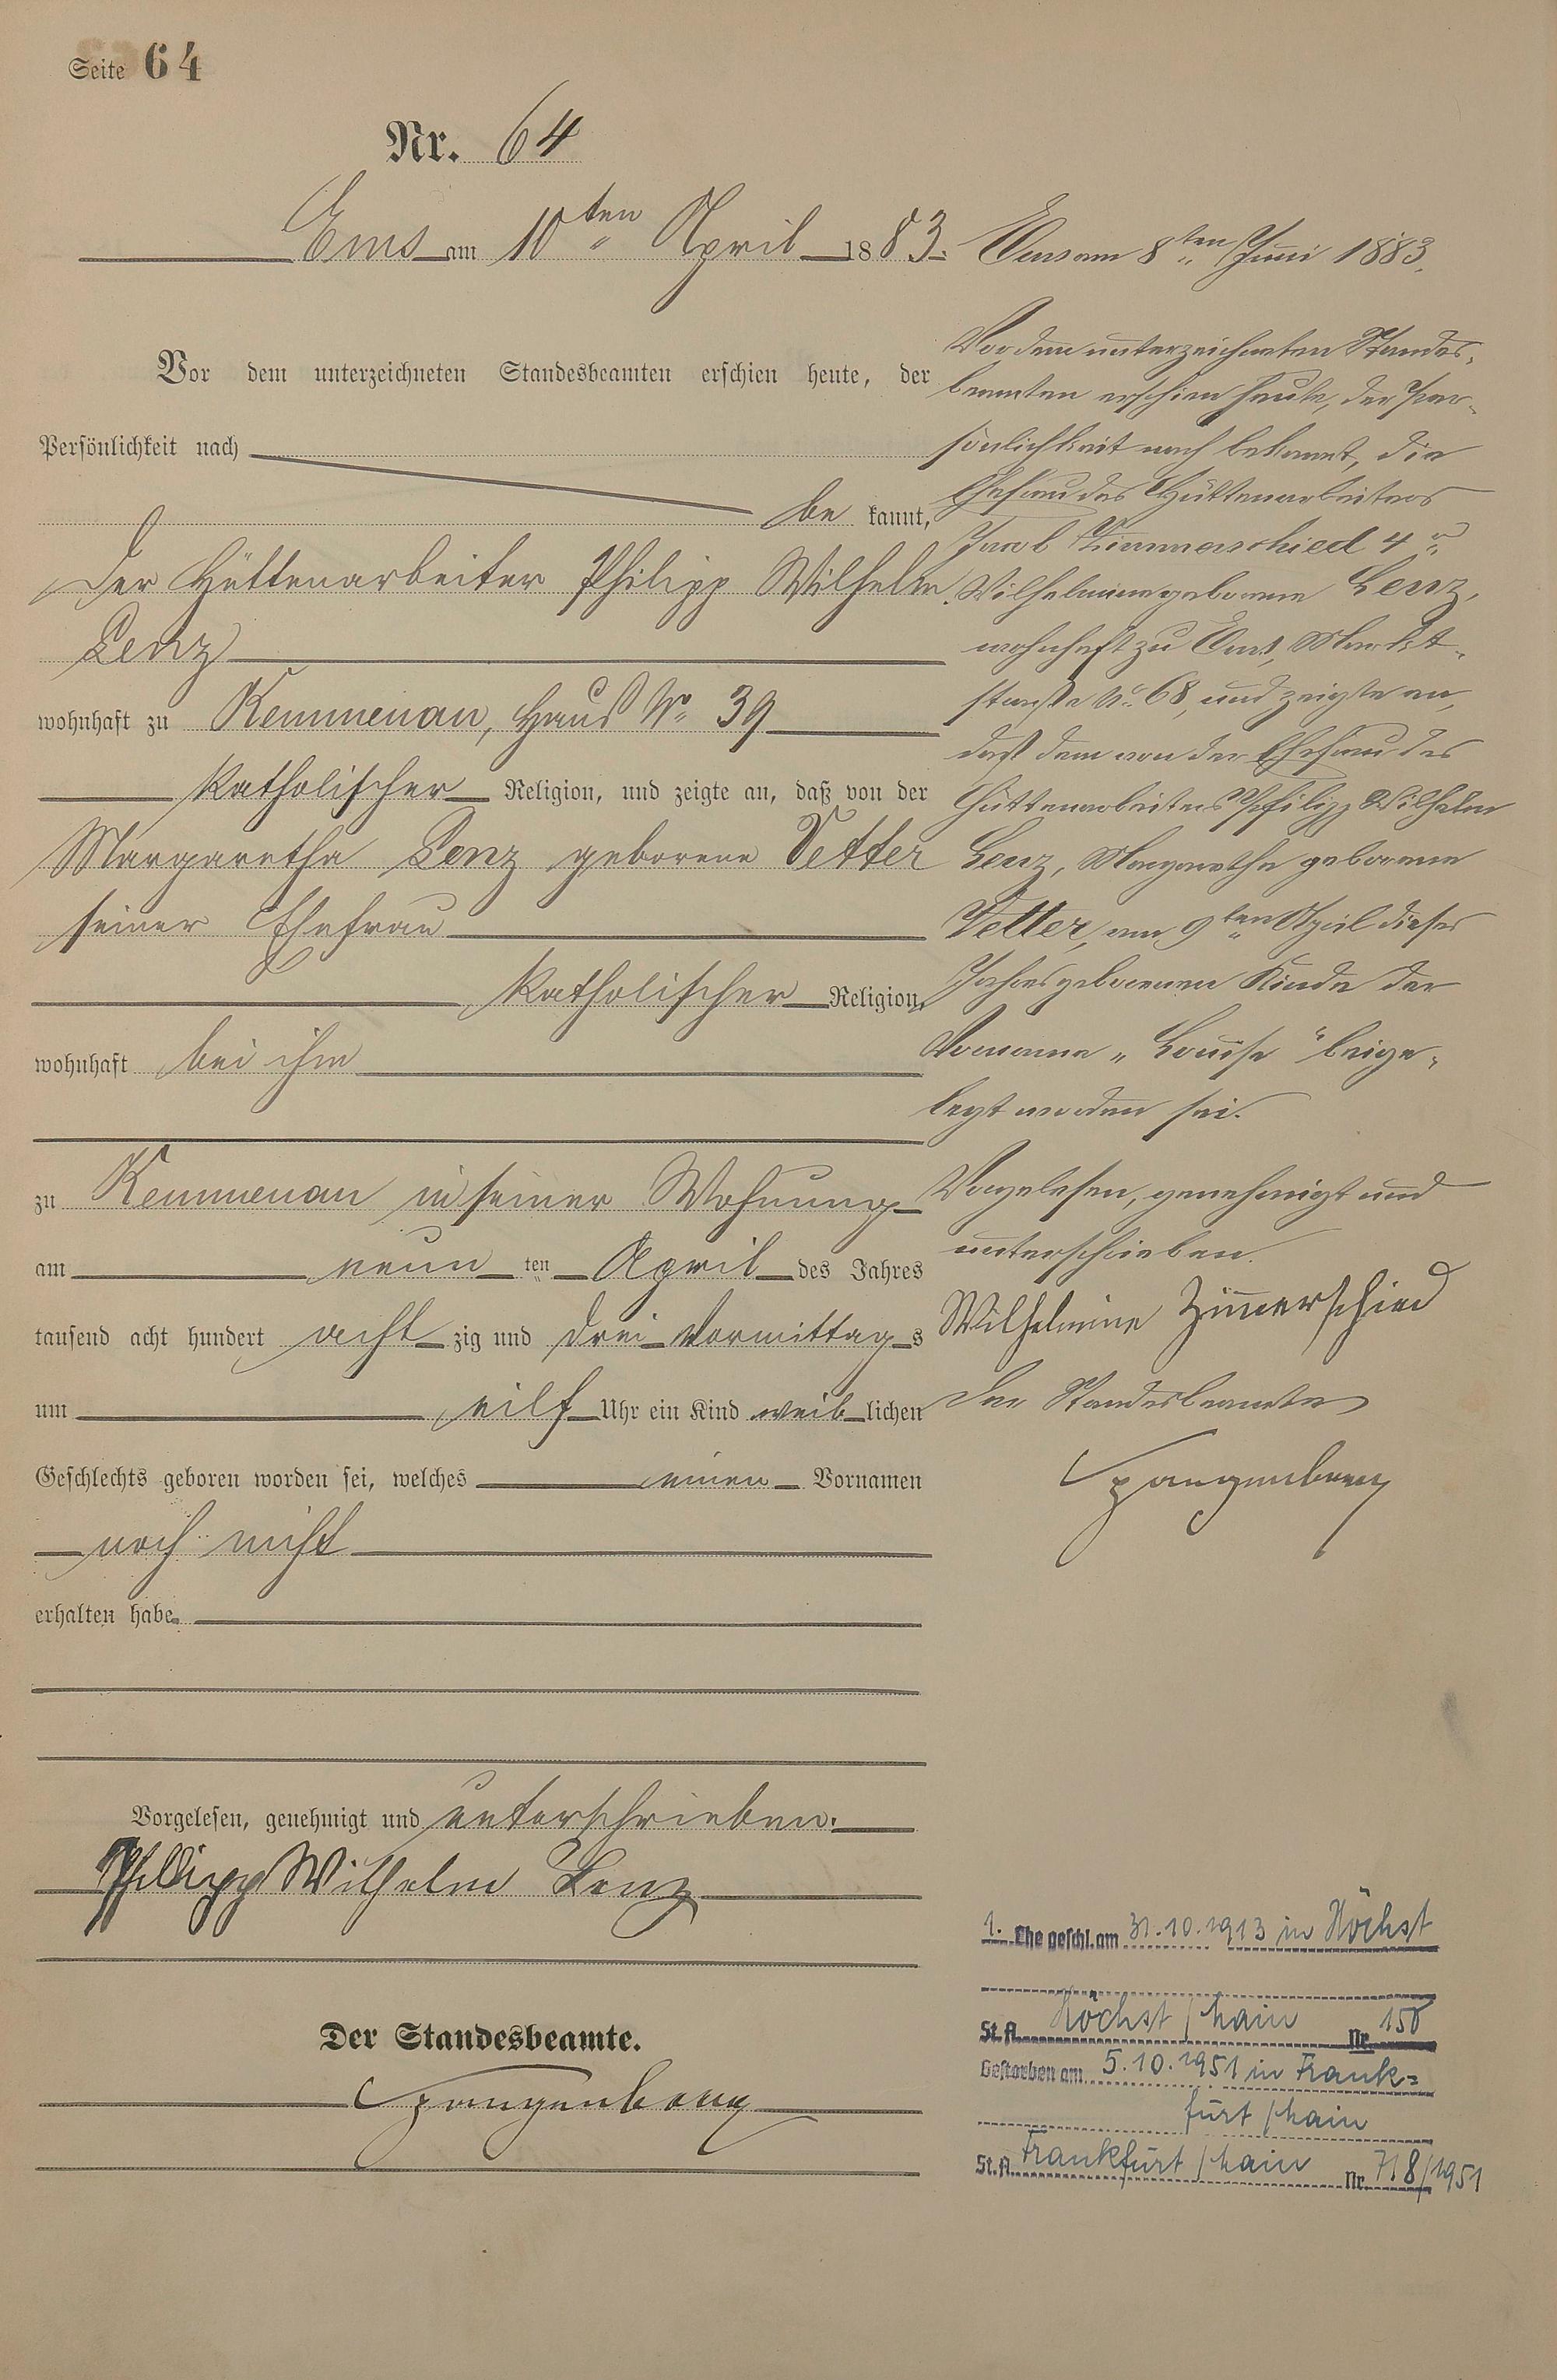 Seite 64
Nr. 64
Ems am 10ten April 1883.
Vor dem unterzeichneten Standesbeamten erschien heute, der
Persönlichkeit nach
be kannt,
der Hüttenarbeiter Philipp Wilhelm
Lenz
wohnhaft zu Kemmenau, Haus No 39
katholischer Religion, und zeigte an, daß von der
Margaretha Lenz geborene Vetter
seiner Ehefrau
katholischer Religion,
wohnhaft bei ihm
zu Kemmenau in seiner Wohnung
am neun ten April des Jahres
tausend acht hundert acht zig und drei Vormittag s
um eilf Uhr ein Kind weib lichen
Geschlechts geboren worden sei, welches einen Vornamen
noch nicht
erhalten habe.
Vorgelesen, genehmigt und unterschrieben.
Philipp Wilhelm Lenz
Der Standesbeamte.
Spangenberg
Ems am 8ten Juni 1883.
Vor dem unterzeichneten Standes-
beamten erschien heute, der Per-
sönlichkeit nach bekannt, die
Ehefrau des Hüttenarbeiters
Jacob Zimmerschied 4r
Wilhelmine geborene Lenz,
wohnhaft zu Ems, Markt-
straße No 68, und zeigte an,
daß dem von der Ehefrau des
Hüttenarbeiters Philipp Wilhelm
Lenz, Margaretha geborene
Vetter, am 9ten April dieses
Jahres geborenen Kinde der
Vorname „Louise" beige-
legt worden sei.
Vorgelesen, genehmigt und
unterschrieben.
Wilhelmine Zimmerschied
Der Standesbeamte
Spangenberg
1. Ehe geschl. am 31.10.1913 in Höchst
St. A. Höchst / Main Nr. 158
Gestorben am 5.10.1951 in Frank=
furt / Main
St. A. Frankfurt / Main Nr. 718/1951